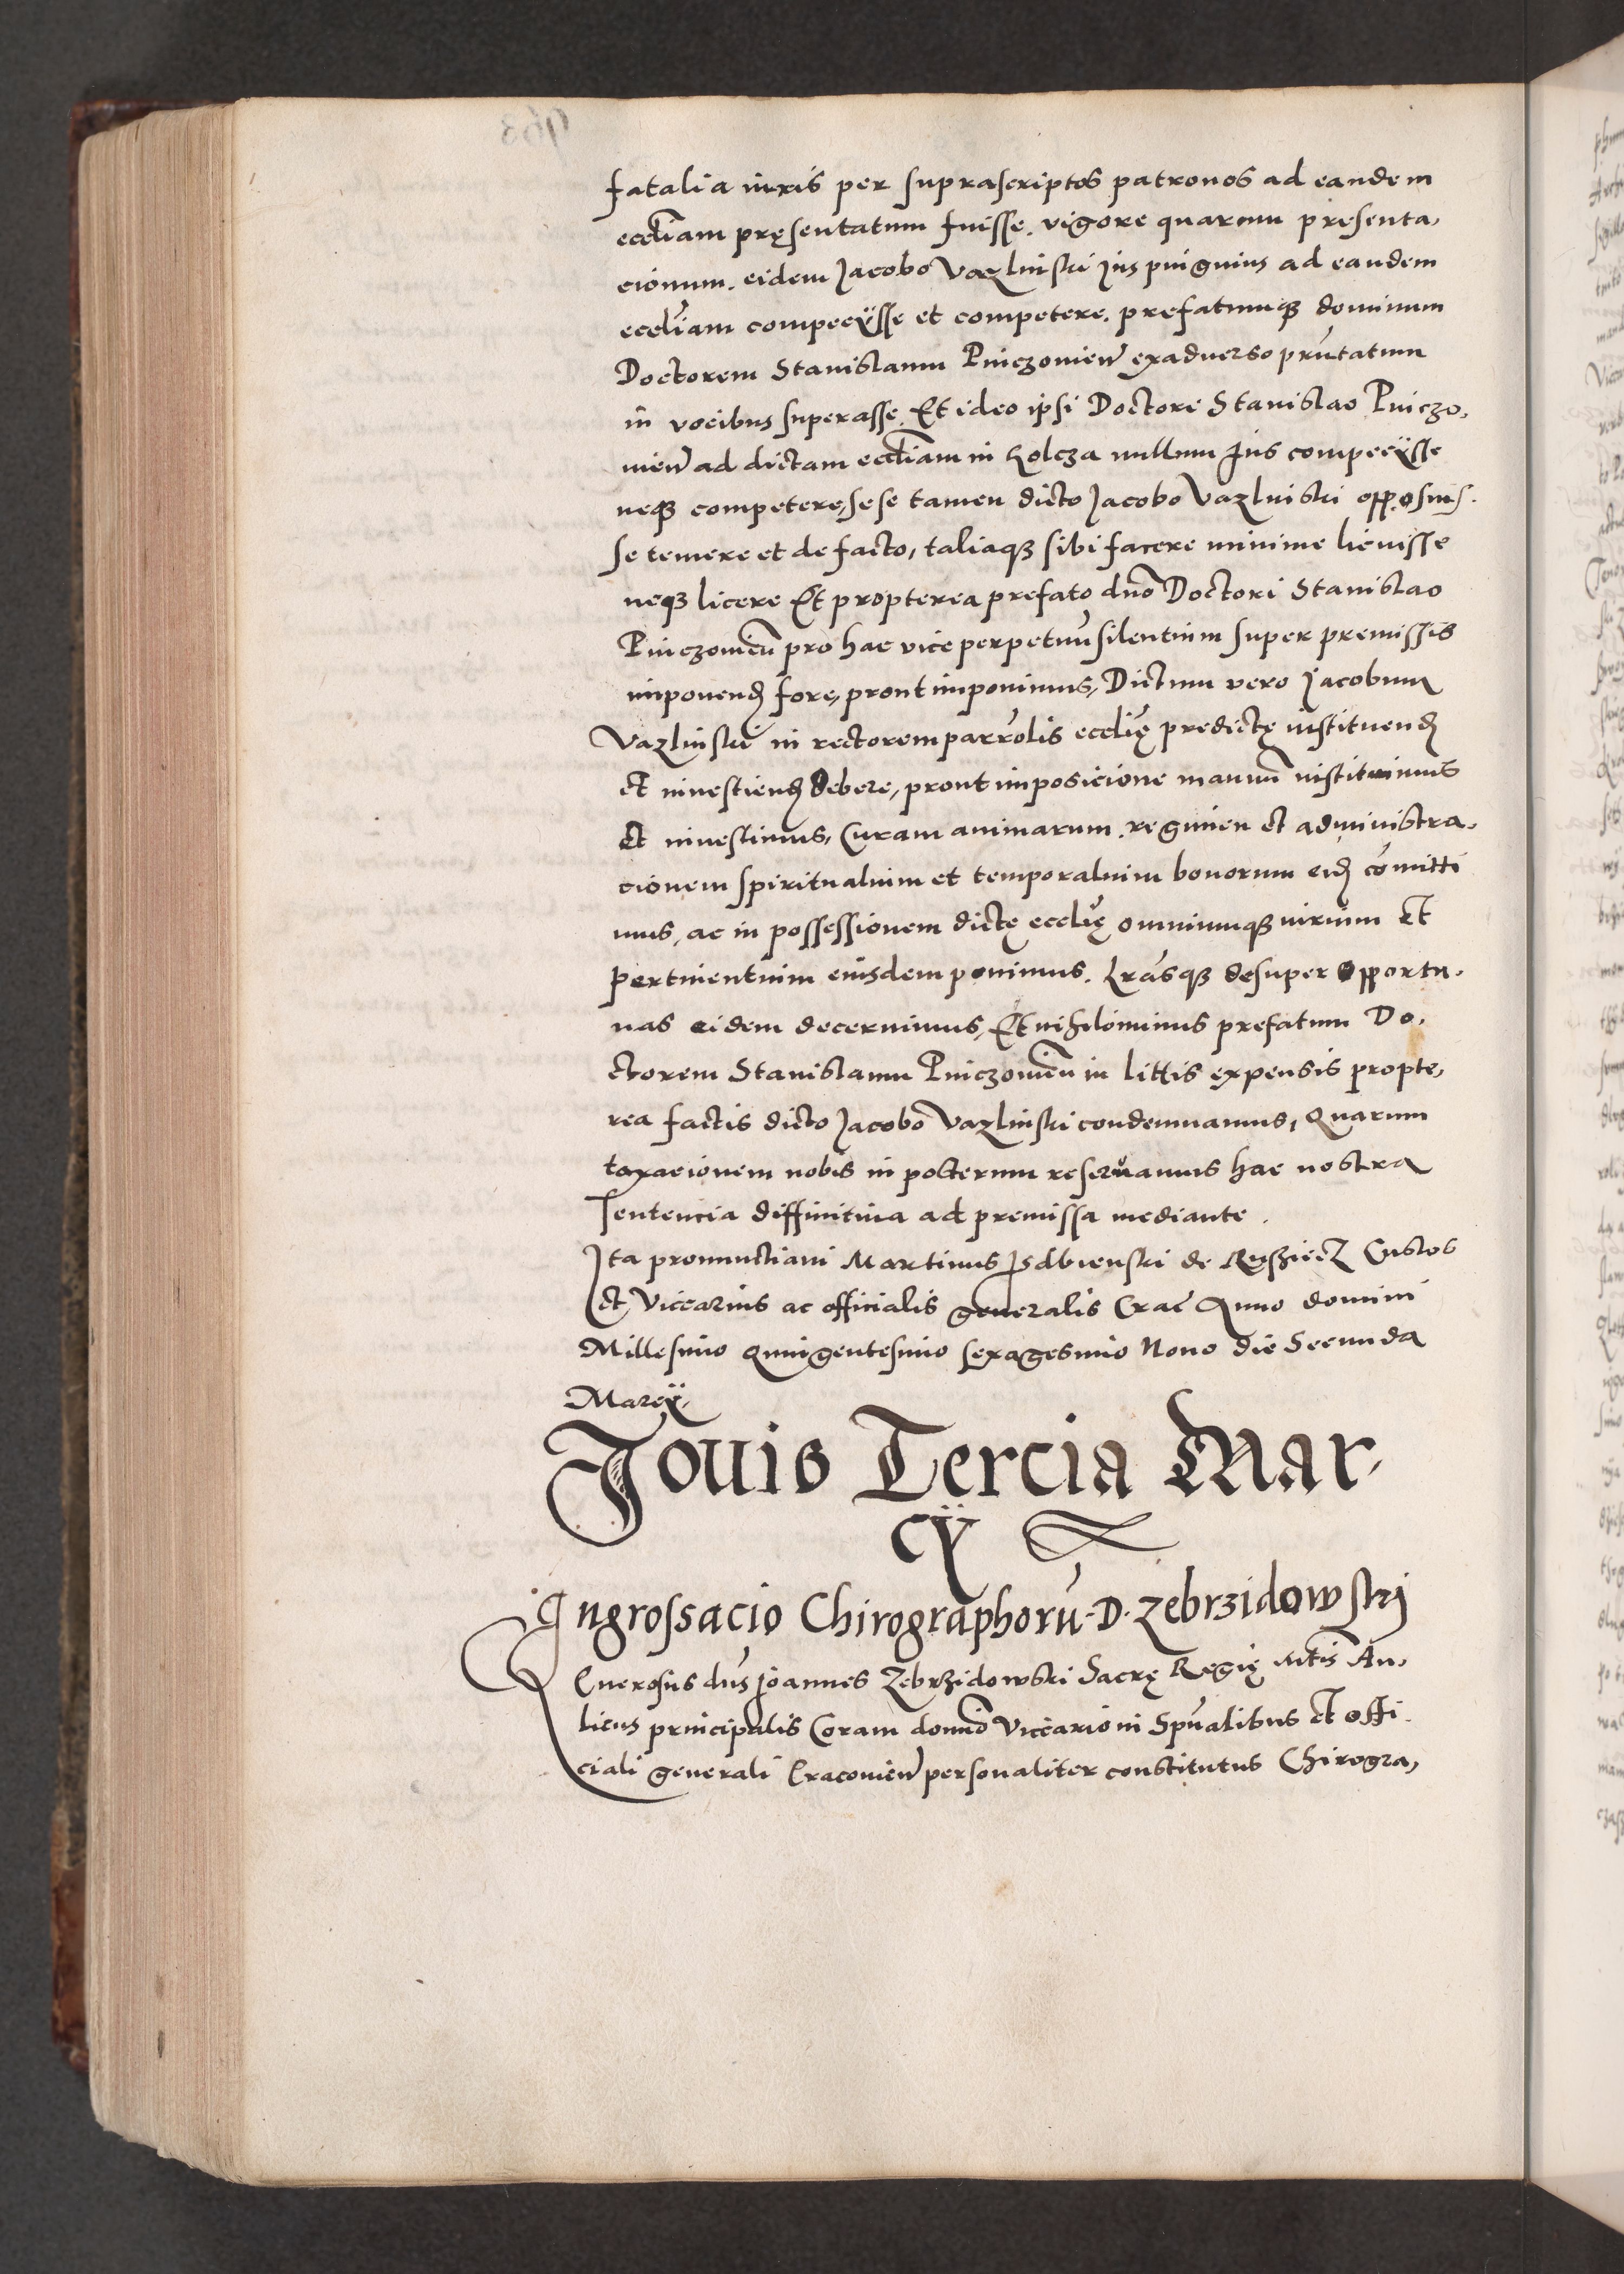 fatalia iuris per suprascriptos patronos ad eandem
eccłiam pręsentatum fuisse. vigore quarum presenta,
cionum. eidem Jacobo Vazlinski Jus pinguius ad eandem
eccłiam competÿsse et competere. prefatumqȝ dominum
Doctorem Stanislaum Pniczomieñ exaduerso pñtatum
in vocibus superasse. Et ideo ipsi Doctore Stanislao Pniczo,
mieñ ad dictam eccłiam in Kolcza nullum Jus competÿsse
neqȝ competere, sese tamen dicto Jacobo Vazlniski opposuis.
se temere et de facto, taliaqȝ sibi facere minime licuisse
neqȝ licere Et propterea prefato dño Doctori Stanislao
Pniczomieñ pro hac vice perpetuũ silentium super premissis
imponend fore, prout imponimus, Dictum vero Jacobum
Vazlinski in rectorem parrołis eccłię predictę instituend
et inuestiend debere, prout imposicione manuũ instituimus
et inuestimus, Curam animarum. regimen et administra,
cionem spiritualium et temporalium bonorum eid cõmitti
mus, ac in possessionem dictę eccłię omniumqȝ iurium Et
pertinentium eiusdem ponimus. Lrãsqȝ desuper opportu,
nas eidem decernimus, Et nihilominus prefatum Do,
ctorem Stanislaum Pniczomieñ in littis expensis propte,
rea factis dicto Jacobo Vazlinski condemnamus, Quarum
taxacionem nobis in posterum reseruamus hac nostra
Sentencia diffinitiua ad premissa mediante.
Ita pronunctiaui Martinus Isdbienski de Rusziecz Custos
et Vicearius ac officialis generalis Crac̃ Anno domini
Millesimo Quingentesimo sexagesimo Nono die Secunda
Marcÿ,
Jouis Tercia Mar,
cÿ
Ingrossacio Chirographorũ. D. Zebrzidowskj
Generosus dñs Joannes Zebrzidowski Sacrę Regię Mtis Au,
licus principalis Coram domĩo Viceario in Spũalibus Et offi.
ciali generali Cracouieñ personaliter constitutus Chirogra,